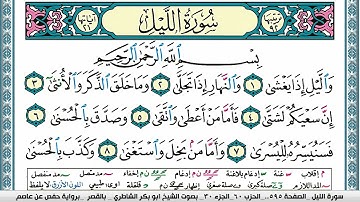 سُورَةُ اللَّيْلِ
بِسْمِ اللَّهِ الرَّحْمَٰنِ الرَّحِيمِ
وَاللَّيْلِ إِذَا يَغْشَىٰ ١ وَالنَّهَارِ إِذَا تَجَلَّىٰ ٢ وَمَا خَلَقَ الذَّكَرَ وَالْأُنْثَىٰ ٣
إِنَّ سَعْيَكُمْ لَشَتَّىٰ ٤ فَأَمَّا مَنْ أَعْطَىٰ وَاتَّقَىٰ ٥ وَصَدَّقَ بِالْحُسْنَىٰ ٦
فَسَنُيَسِّرُهُ لِلْيُسْرَىٰ ٧ وَأَمَّا مَنْ بَخِلَ وَاسْتَغْنَىٰ ٨ وَكَذَّبَ بِالْحُسْنَىٰ
سورة الليل الصفحة ٥٩٥ الحزب ٦٠ الجزء ٣٠ بصوت الشيخ أبو بكر الشاطري بالقصر برواية حفص عن عاصم